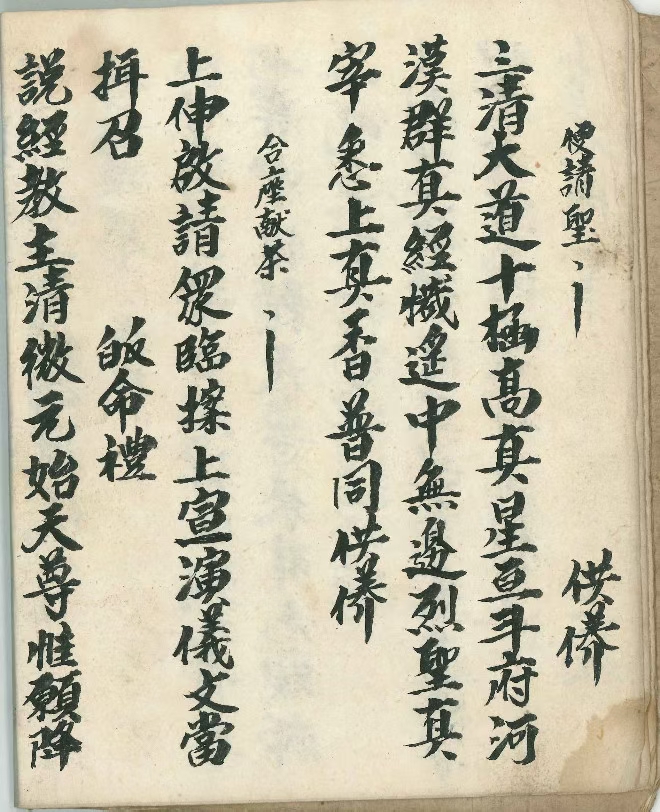 便請聖、｜　供養
三清大道十極高真星𠄢斗府河
漢群真經懺遥中無邊烈聖真
宰悉上真香普同供養
合座献茶、｜
上伸啟請眾臨揬上宣演儀文當
揖召　皈命禮
説經教主清微元始天尊惟願降